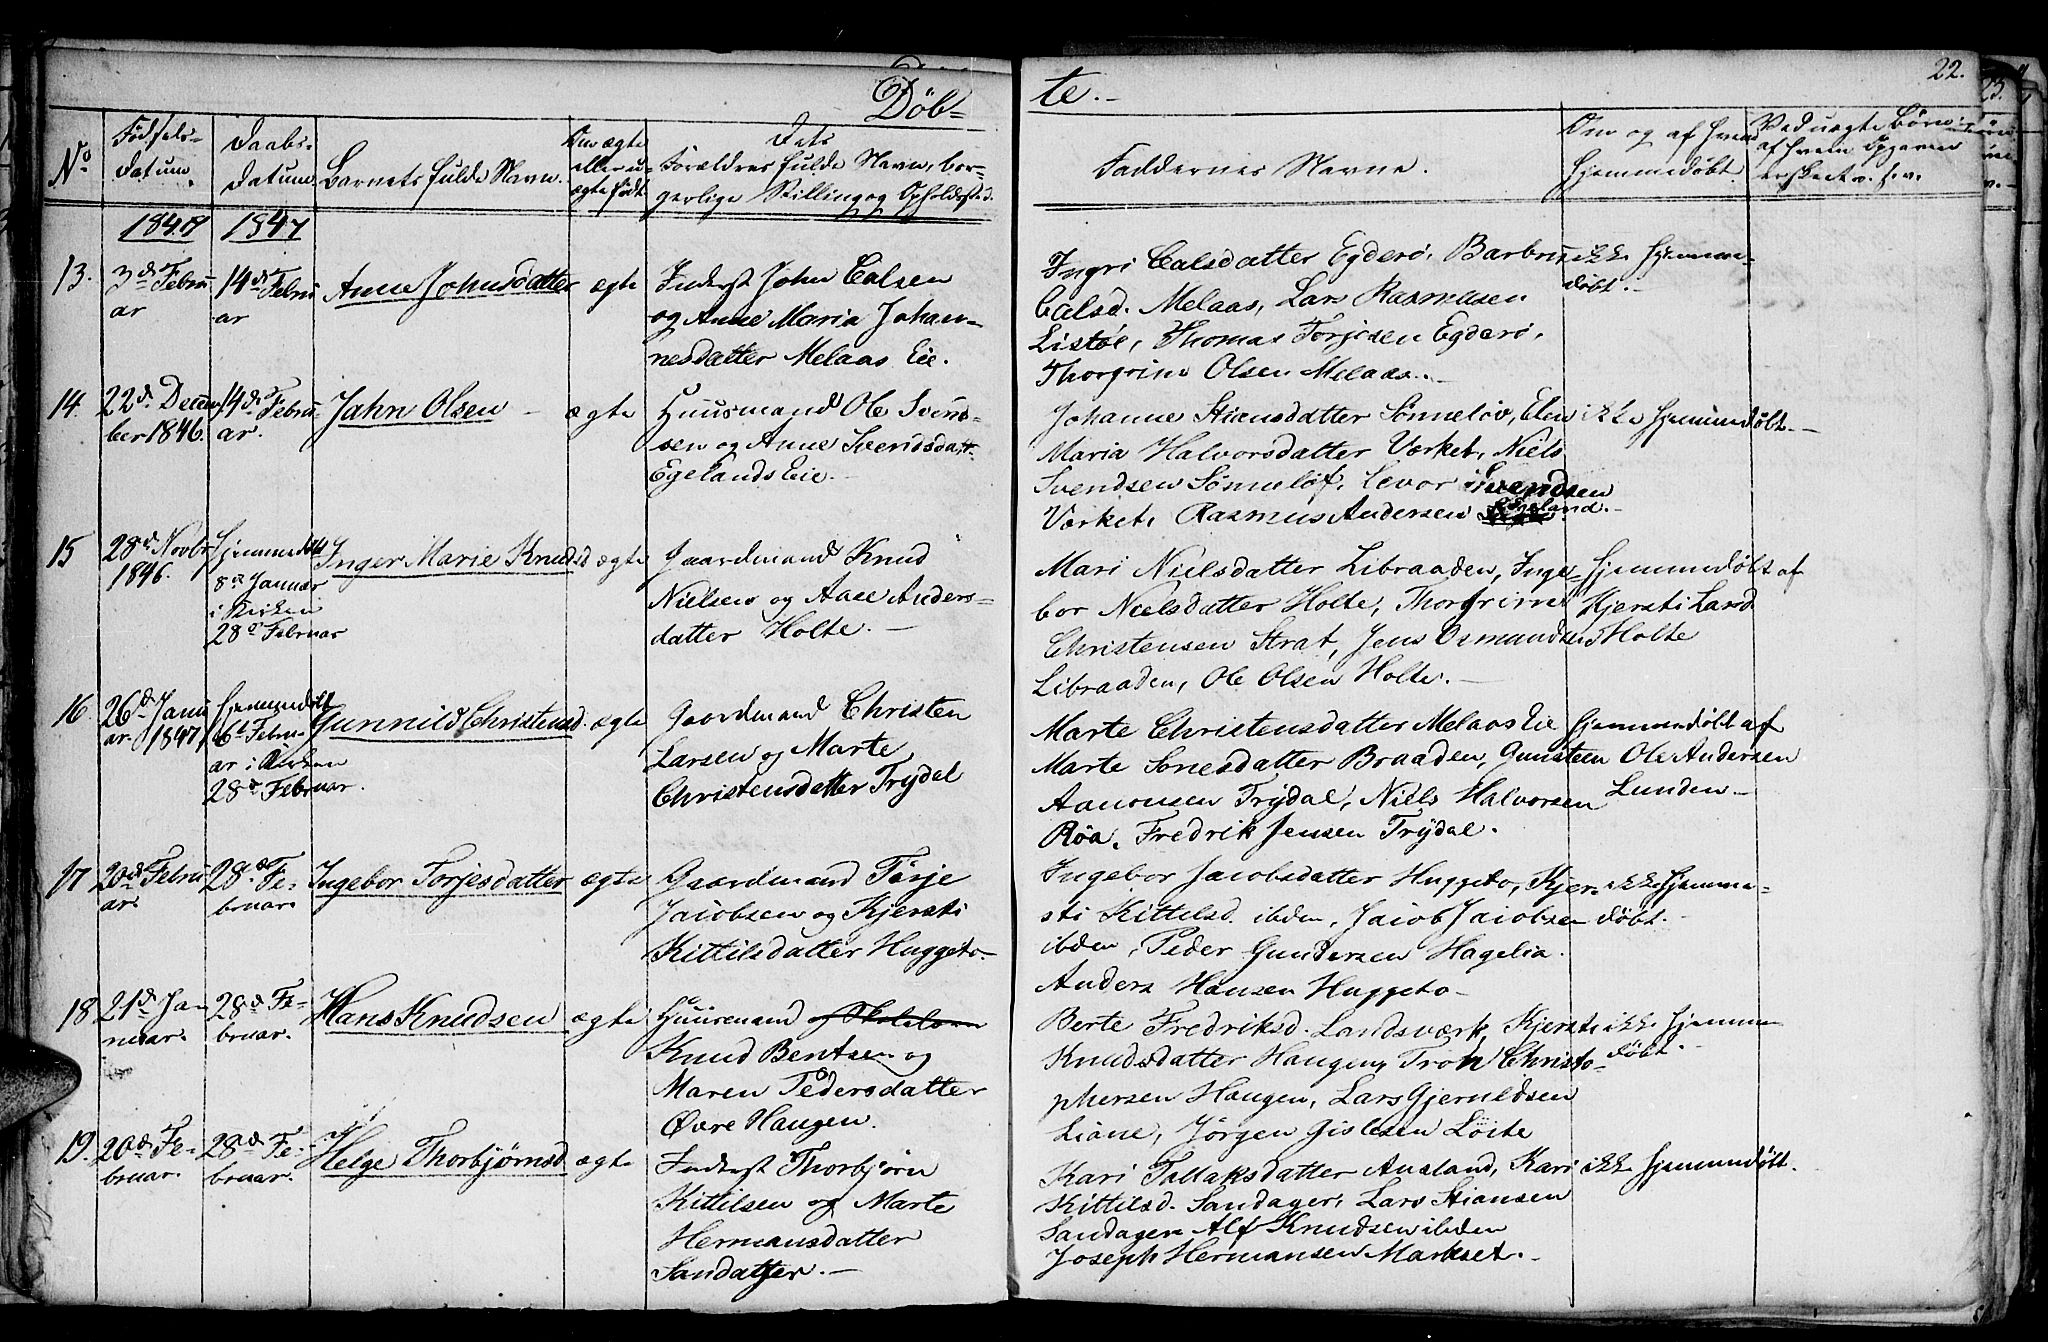 Døb-
te.-
22.
No
Fødsels-
Datum.
Daabs-
Datum
Barnets fulde Navn.
Om ægte
eller u-
ægte født
Dets
Forældres fulde Navn, bor-
gerlige Stilling og Opholdsted.
Faddernes Navne.
Om og af hvem
hjemmedøbt.
Ved uægte Børn:
af hvem Opgaven
er skeet o. s. v.
1847
1847
13.
3de Febru
ar
14de Febru
ar
Anne Johnsdatter
ægte
Inderst John Calsen
og Anne Maria Johan-
nesdatter Melaas Eie.
Ingri Calsdatter Egderø, Barbru
Calsd. Melaas, Lars Rasmusen
Listøl, Thomas Torjesen Egderø,
Thorgrim Olsen Melaas.-
ikke hjemme-
døbt.-
14.
22de Decem
ber 1846.
14de Febru
ar.
Jahn Olsen
ægte
Huusmand Ole Svend-
sen og Anne Svendsdatt.
Egelands Eie.
Johanne Stiensdatter Sønneløv, Elen
Maria Halvorsdatter Værket, Niels
Svendsen Sønneløf, Levor Svendsen
Værket, Rasmus Andersen Egeland.-
ikke hjemmedøbt.-
15
28de Novbr
1846.
hjemmedøbt
8de Januar
i Kirken
28de Februar
Inger Marie Knudsd
ægte
Gaardmand Knud
Nielsen og Aase Anders-
datter Holte.-
Mari Nielsdatter Libraaden, Inge-
bor Nielsdatter Holte, Thorgrim
Christensen Strat, Jens Osmundsen
Libraaden, Ole Olsen Holte.-
hjemmedøbt af
Kjersti Land
Holte
16.
26de Janu
ar 1847,
hjemmedøbt
6te Febru-
ar i Kirken
28de Februar.
Gunnild Christensd.
ægte
Gaardmand Christen
Larsen og Marte
Christensdatter Trydal
Marte Christensdatter Melaas Eie
Marte Sonesdatter Braaden, Gunsteen
Aanonsen Trydal, Niels Halvorsen
Røa, Fredrik Jensen Trydal.
hjemmedøbt af
Ole Andersen
Lunden-
17
20de Febru
ar
28de Fe-
bruar
Ingebor Torjesdatter
ægte
Gaardmand Torje
Jacobsen og Kjersti
Kittilsdatter Huggeto-
Ingebor Jacobsdatter Huggeto, Kjer-
sti Kittelsd. ibden, Jacob Jacobsen
ibden, Peder Gundersen Hagelia.
Anders Hansen Huggeto-
ikke hjemme-
døbt.-
18
21de Jan
nuar.
28de Fe-
bruar.
Hans Knudsen
ægte
Huusmand
Knud Bentsen og
Maren Pedersdatter
Øvre Haugen.
Berte Fredriksd. Landsværk, Kjersti
Knudsdatter Haugen, Tron Christo-
phersen Haugen, Lars Gjeruldsen
Liane, Jørgen Gislesen Løite
ikke hjemme
døbt.-
19.
20de Fe-
bruar.
28de Fe-
bruar.
Helge Thorbjørnsd
ægte
Inderst Thorbjørn
Kittilsen og Marte
Hermansdatter
Sandager.-
Kari Tallaksdatter Ausland, Kari
Kittilsd. Sandager, Lars Stiansen
Sandager Alf Knudsen ibden
Joseph Hermansen Markset.-
ikke hjemmedøbt.